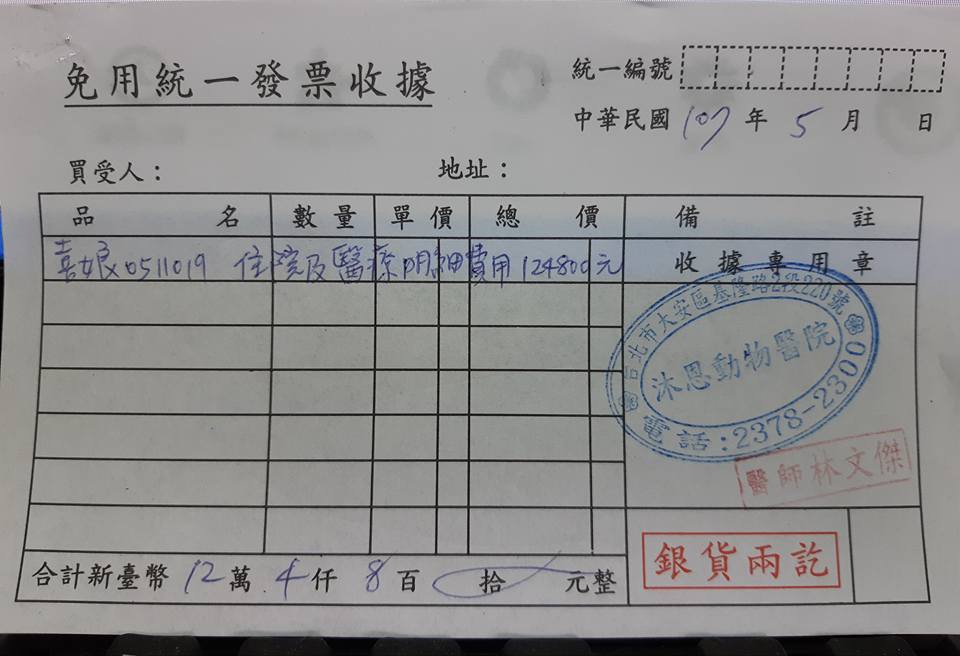 免用統一發票收據
統一編號
中華民國 107 年 5 月 日
買受人： 地址：
品名 數量 單價 總價 備註
喜娘 0511019 住院及醫療明細費用 124800元 收據專用章
台北市大安區基隆路2段220號
沐恩動物醫院
電話：2378-2300
醫師林文傑
合計新臺幣 12 萬 4 仟 8 百 拾 元整
銀貨兩訖